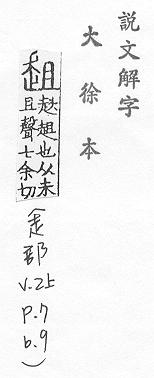 説文解字
大徐本
趄
趑趄也从走
且聲七余切
(走部
v.2上
p.7
b.9)